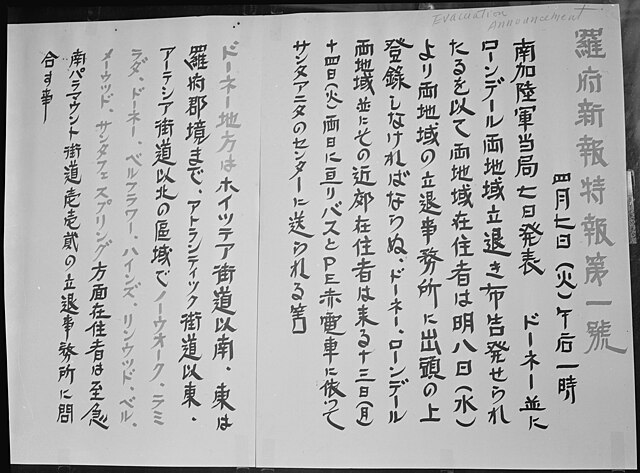 Evacuation
Announcement
羅府新報特報第一號
四月七日(火)午后一時
南加陸軍当局七日発表 ドーネー並に
ローンデール両地域立退き布告発せられ
たるを以て両地域在住者は明八日(水)
より両地域の立退事務所に出頭の上
登錄しなければならぬ、ドーネー、ローンデール
両地域並にその近郊在住者は来る十三日(月)
十四日(火)両日に亘りバスとPE赤電車に依って
サンタアニタのセンターに送られる筈
ドーネー地方はホイツテア街道以南、東は
羅府郡境まで、アトランティック街道以東、
アーテシア街道以北の區域でノーウオーク、ラミ
ラダ、ドーネー、ベルフラワー、ハインズ、リンウッド、ベル、
メーウッド、サンタフェスプリング方面在住者は至急
南パラマウント街道壱壱貳の立退事務所に問
合す事